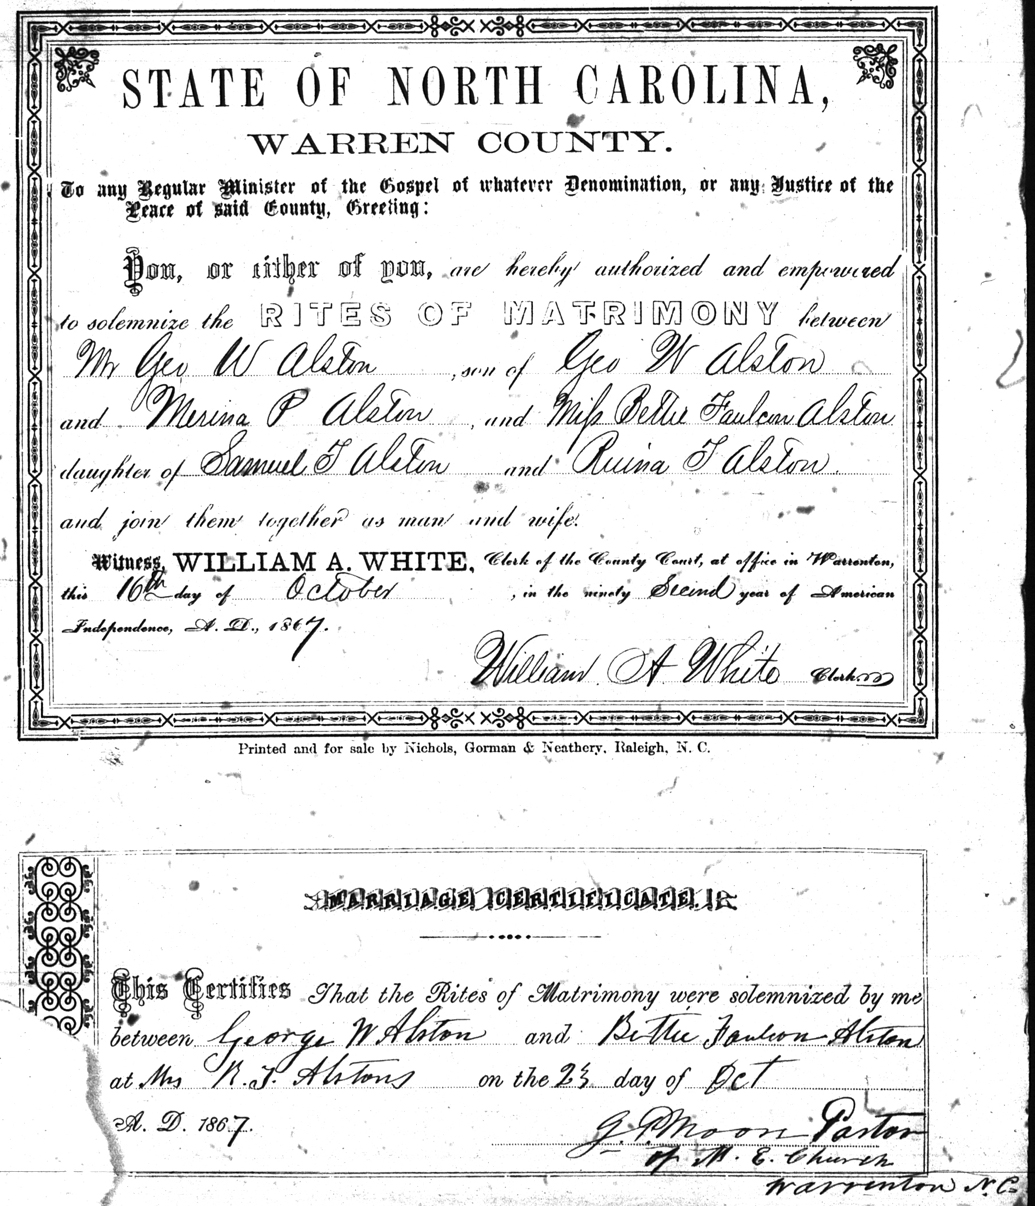 STATE OF NORTH CAROLINA,
WARREN COUNTY.
To any Regular Minister of the Gospel of whatever Denomination, or any Justice of the
Peace of said County, Greeting:
You, or either of you, are hereby authorized and empowered
to solemnize the RITES OF MATRIMONY between
Mr Geo W Alston , son of Geo W Alston
and Merina P Alston , and Miss Bettie Faulcon Alston
daughter of Samuel T Alston and Ruina T Alston.
and join them together as man and wife.
Witness, WILLIAM A. WHITE, Clerk of the County Court, at office in Warrenton,
this 16th day of October , in the ninety Second year of American
Independence, A. D., 1867.
William A White Clerk
Printed and for sale by Nichols, Gorman & Neathery, Raleigh, N. C.
MARRIAGE CERTIFICATE.
This Certifies That the Rites of Matrimony were solemnized by me
between George W Alston and Bettie Faulcon Alston
at Mrs R. T. Alstons on the day of Oct
A. D. 1867.
G. P. Moon Pastor
of M. E. Church
Warrenton N. C.